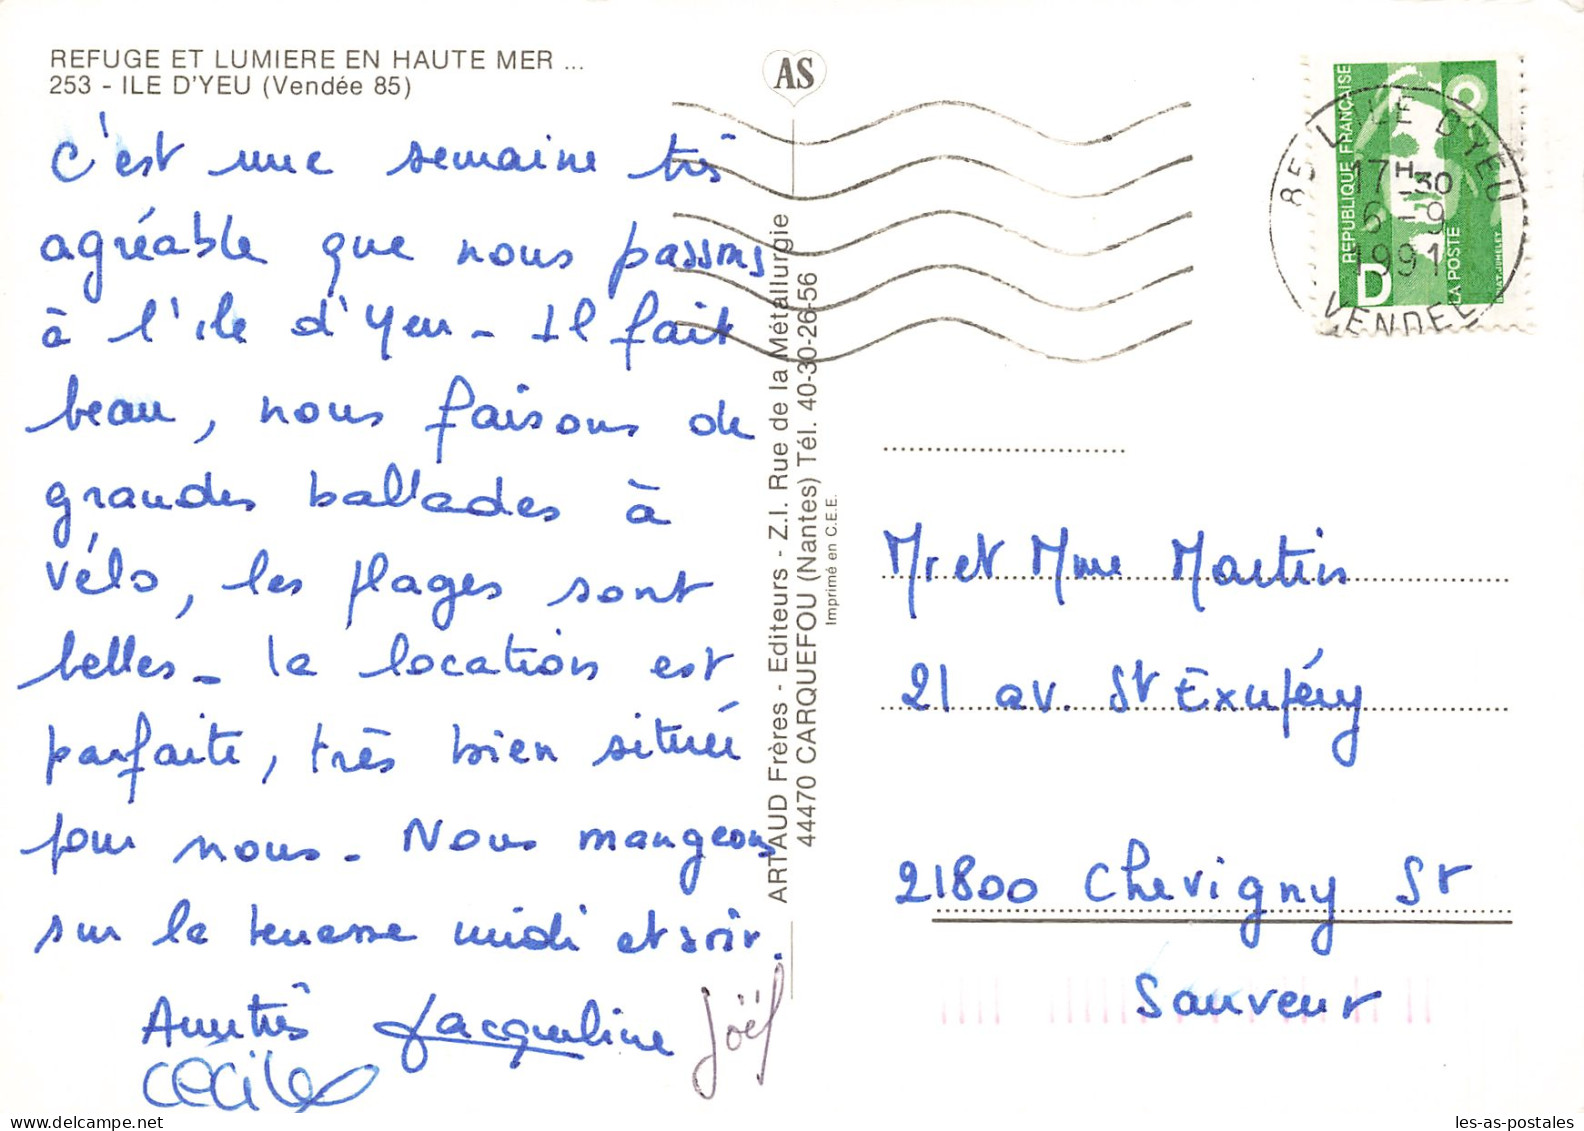 REFUGE ET LUMIERE EN HAUTE MER ...
253 - ILE D'YEU (Vendée 85)
C'est une semaine très
agréable que nous passons
à l'île d'Yeu - Il fait
beau, nous faisons de
grandes ballades à
vélo, les plages sont
belles - la location est
parfaite, très bien située
pour nous - Nous mangeons
sur la terrasse midi et soir.
Amitiés Jacqueline Joël
Cécile
AS
ARTAUD Frères - Editeurs - Z.I. Rue de la Métallurgie
44470 CARQUEFOU (Nantes) Tél. 40-30-26-56
Imprimé en C.E.E.
RÉPUBLIQUE FRANÇAISE
D
LA POSTE
85 L'ILE D'YEU
17H30
6-9
1991
VENDEE
Mr et Mme Martin
21 av. St Exupéry
21800 Chevigny St
Sauveur
les-as-postales